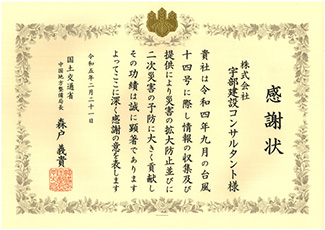 感謝状
株式会社
宇部建設コンサルタント様
貴社は令和四年九月の台風
十四号に際し情報の収集及び
提供により災害の拡大防止並びに
二次災害の予防に大きく貢献し
その功績は誠に顕著であります
よってここに深く感謝の意を表します
令和五年二月二十一日
国土交通省
中国地方整備局長
森戸義貴